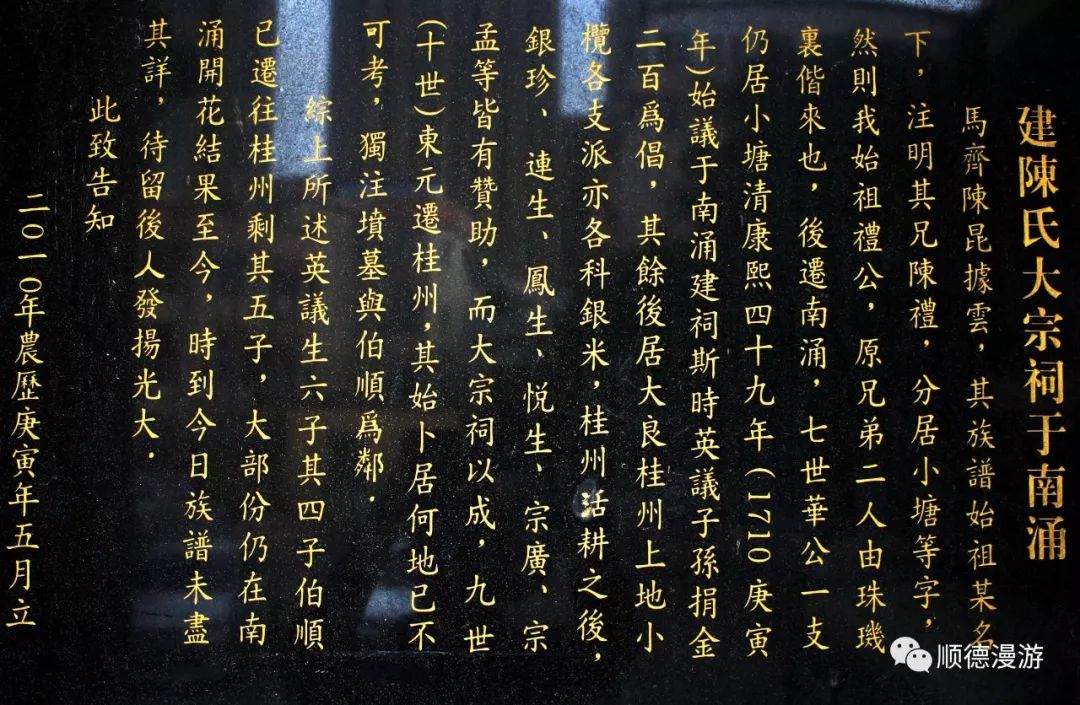 建陳氏大宗祠于南涌
馬齊陳昆據雲，其族譜始祖某名
下，注明其兄陳禮，分居小塘等字，
然則我始祖禮公，原兄弟二人由珠璣
裏偕來也，後遷南涌，七世華公一支
仍居小塘清康熙四十九年(1710庚寅
年)始議于南涌建祠斯時英議子孫捐金
二百爲倡，其餘後居大良桂州上地小
欖各支派亦各科銀米，桂州活耕之後，
銀珍、連生、鳳生、悦生、宗廣、宗
孟等皆有贊助，而大宗祠以成，九世
(十世)東元遷桂州，其始卜居何地已不
可考，獨注墳墓與伯順爲鄰．
綜上所述英議生六子其四子伯順
已遷往桂州剩其五子，大部份仍在南
涌開花結果至今，時到今日族譜未盡
其詳，待留後人發揚光大．
此致告知
二0一0年農歷庚寅年五月立
顺德漫游